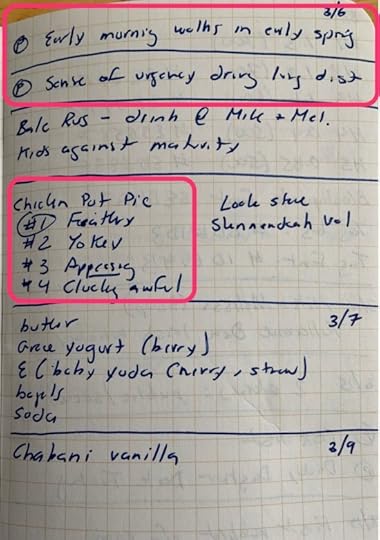 3/6
Ⓟ Early morning walks in early spring
Ⓟ Sense of urgency driving long dist
Balc Rvs – drink @ Milk + Mel.
Kids against maturity
Chicken Pot Pie
#1 Feathry
#2 Yokey
#3 Appresig
#4 Clucky awful
Look stve
Shennendoah Val
3/7
butter
Greek yogurt (berry)
E (baby yoda (cherry, straw)
bagels
soda
Chabani vanilla
3/9